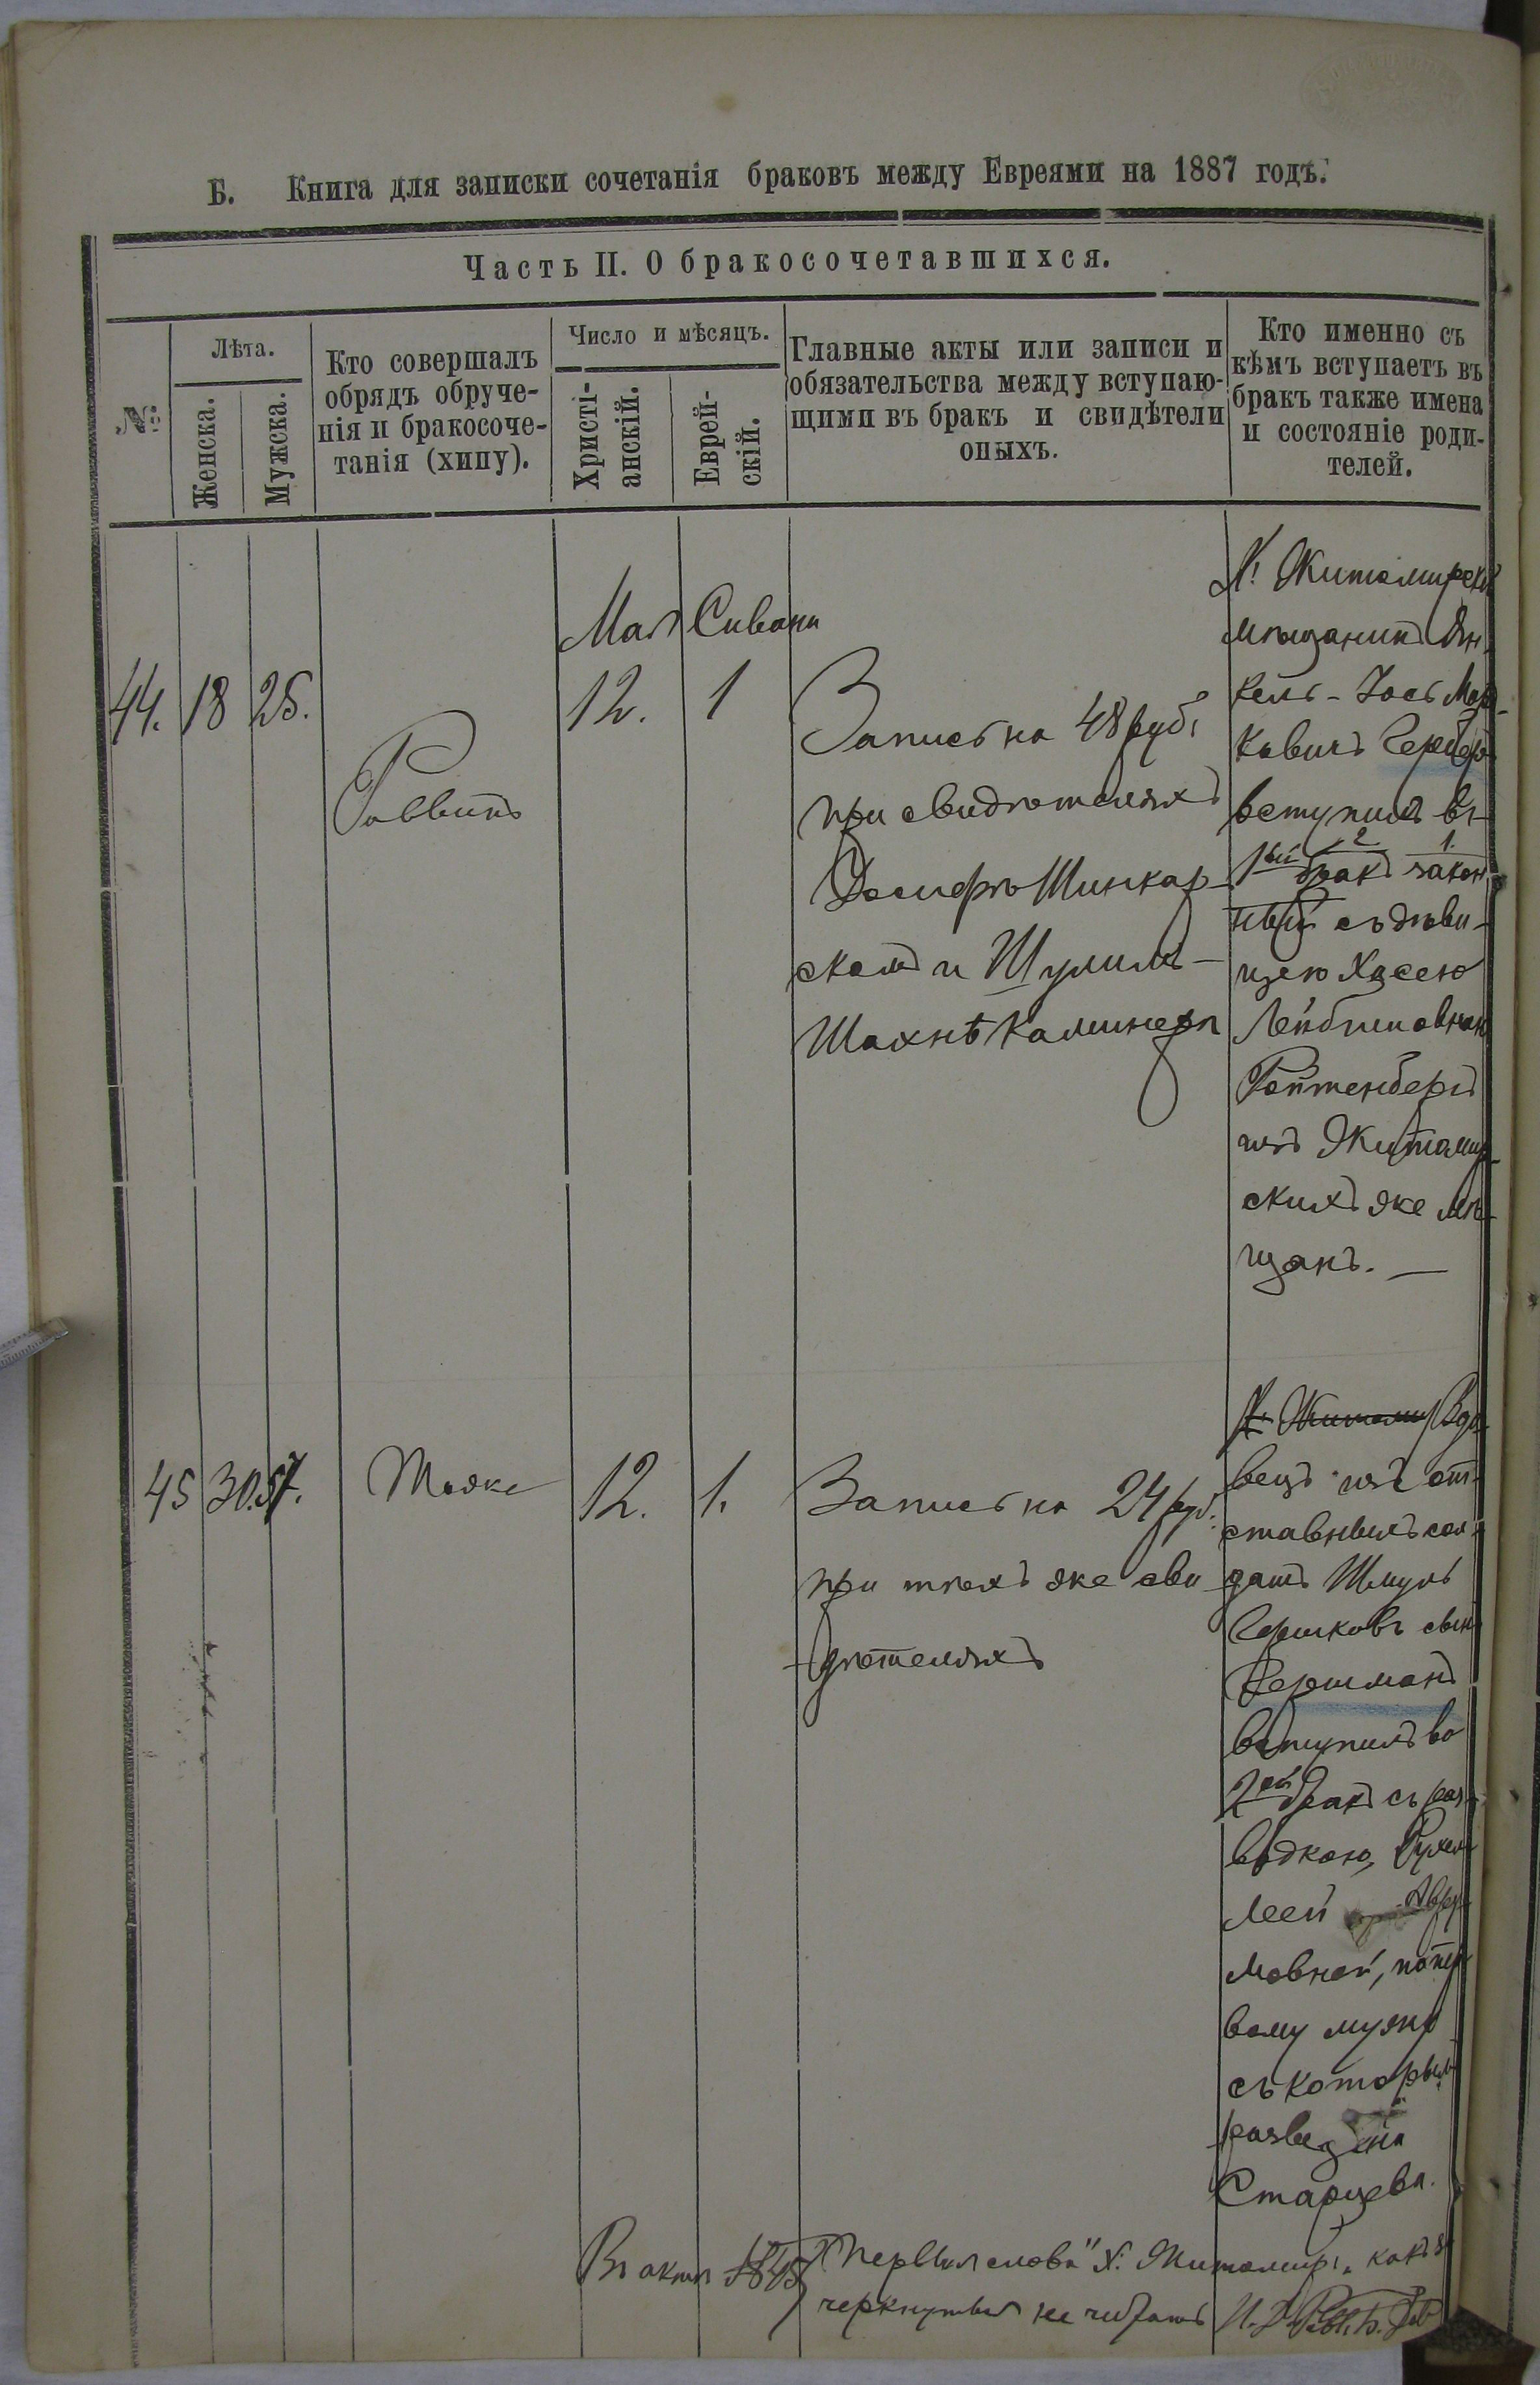 Б. Книга для записки сочетанія браковъ между Евреями на 1887 годъ.
Часть II. О бракосочетавшихся.
№
Лѣта.
Женска.
Мужска.
Кто совершалъ
обрядъ обруче-
нія и бракосоче-
танія (хипу).
Число и мѣсяцъ.
Христі-
анскій.
Еврей-
скій.
Главные акты или записи и
обязательства между вступаю-
щими въ бракъ и свидѣтели
оныхъ.
Кто именно съ
кѣмъ вступаетъ въ
бракъ также имена
и состояніе роди-
телей.
44.
18
25.
Раввинъ
Мая
12.
Сивана
1
Запись на 48 руб.
при свидѣтеляхъ
Іосифѣ Шинкар-
скомъ и Шулимъ-
Шахнѣ Каминеръ
Житомирскій
мѣщанинъ Ян-
кель-Іось Мор-
ковичъ Гербер
вступилъ въ
1ый бракъ закон
ный съ дѣви-
цею Хасею
Лейбишовною
Ройтенбергъ
изъ Житомир-
скихъ же мѣ-
щанъ.
45
30.
57.
Тоже
12.
1.
Запись на 24 руб.
при тѣхъ же сви
дѣтеляхъ
Житомир Вдо-
вецъ изъ от-
ставныхъ сол-
датъ Шмуль
Гершковъ сынъ
Гершманъ
вступилъ во
2ой бракъ съ раз-
водкою, Рухел
Леей Авру
мовной, по пер
вому мужу
съ которым
разведена
Старцева.
Въ актѣ №45 первыя слова "Х. Житомир„ какъ за
черкнутыя не читать